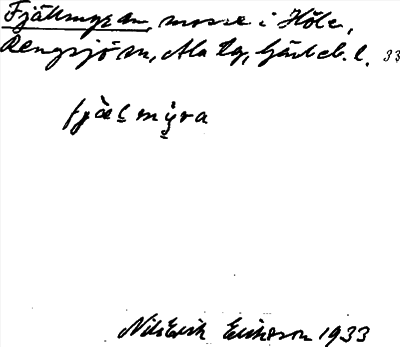 Fjällmyran, mosse i Höle,
Rengsjö sn, Ala tg, Gävleb. l. 33
fjæ̀lmy̆ra
Nils Erik Eriksson 1933